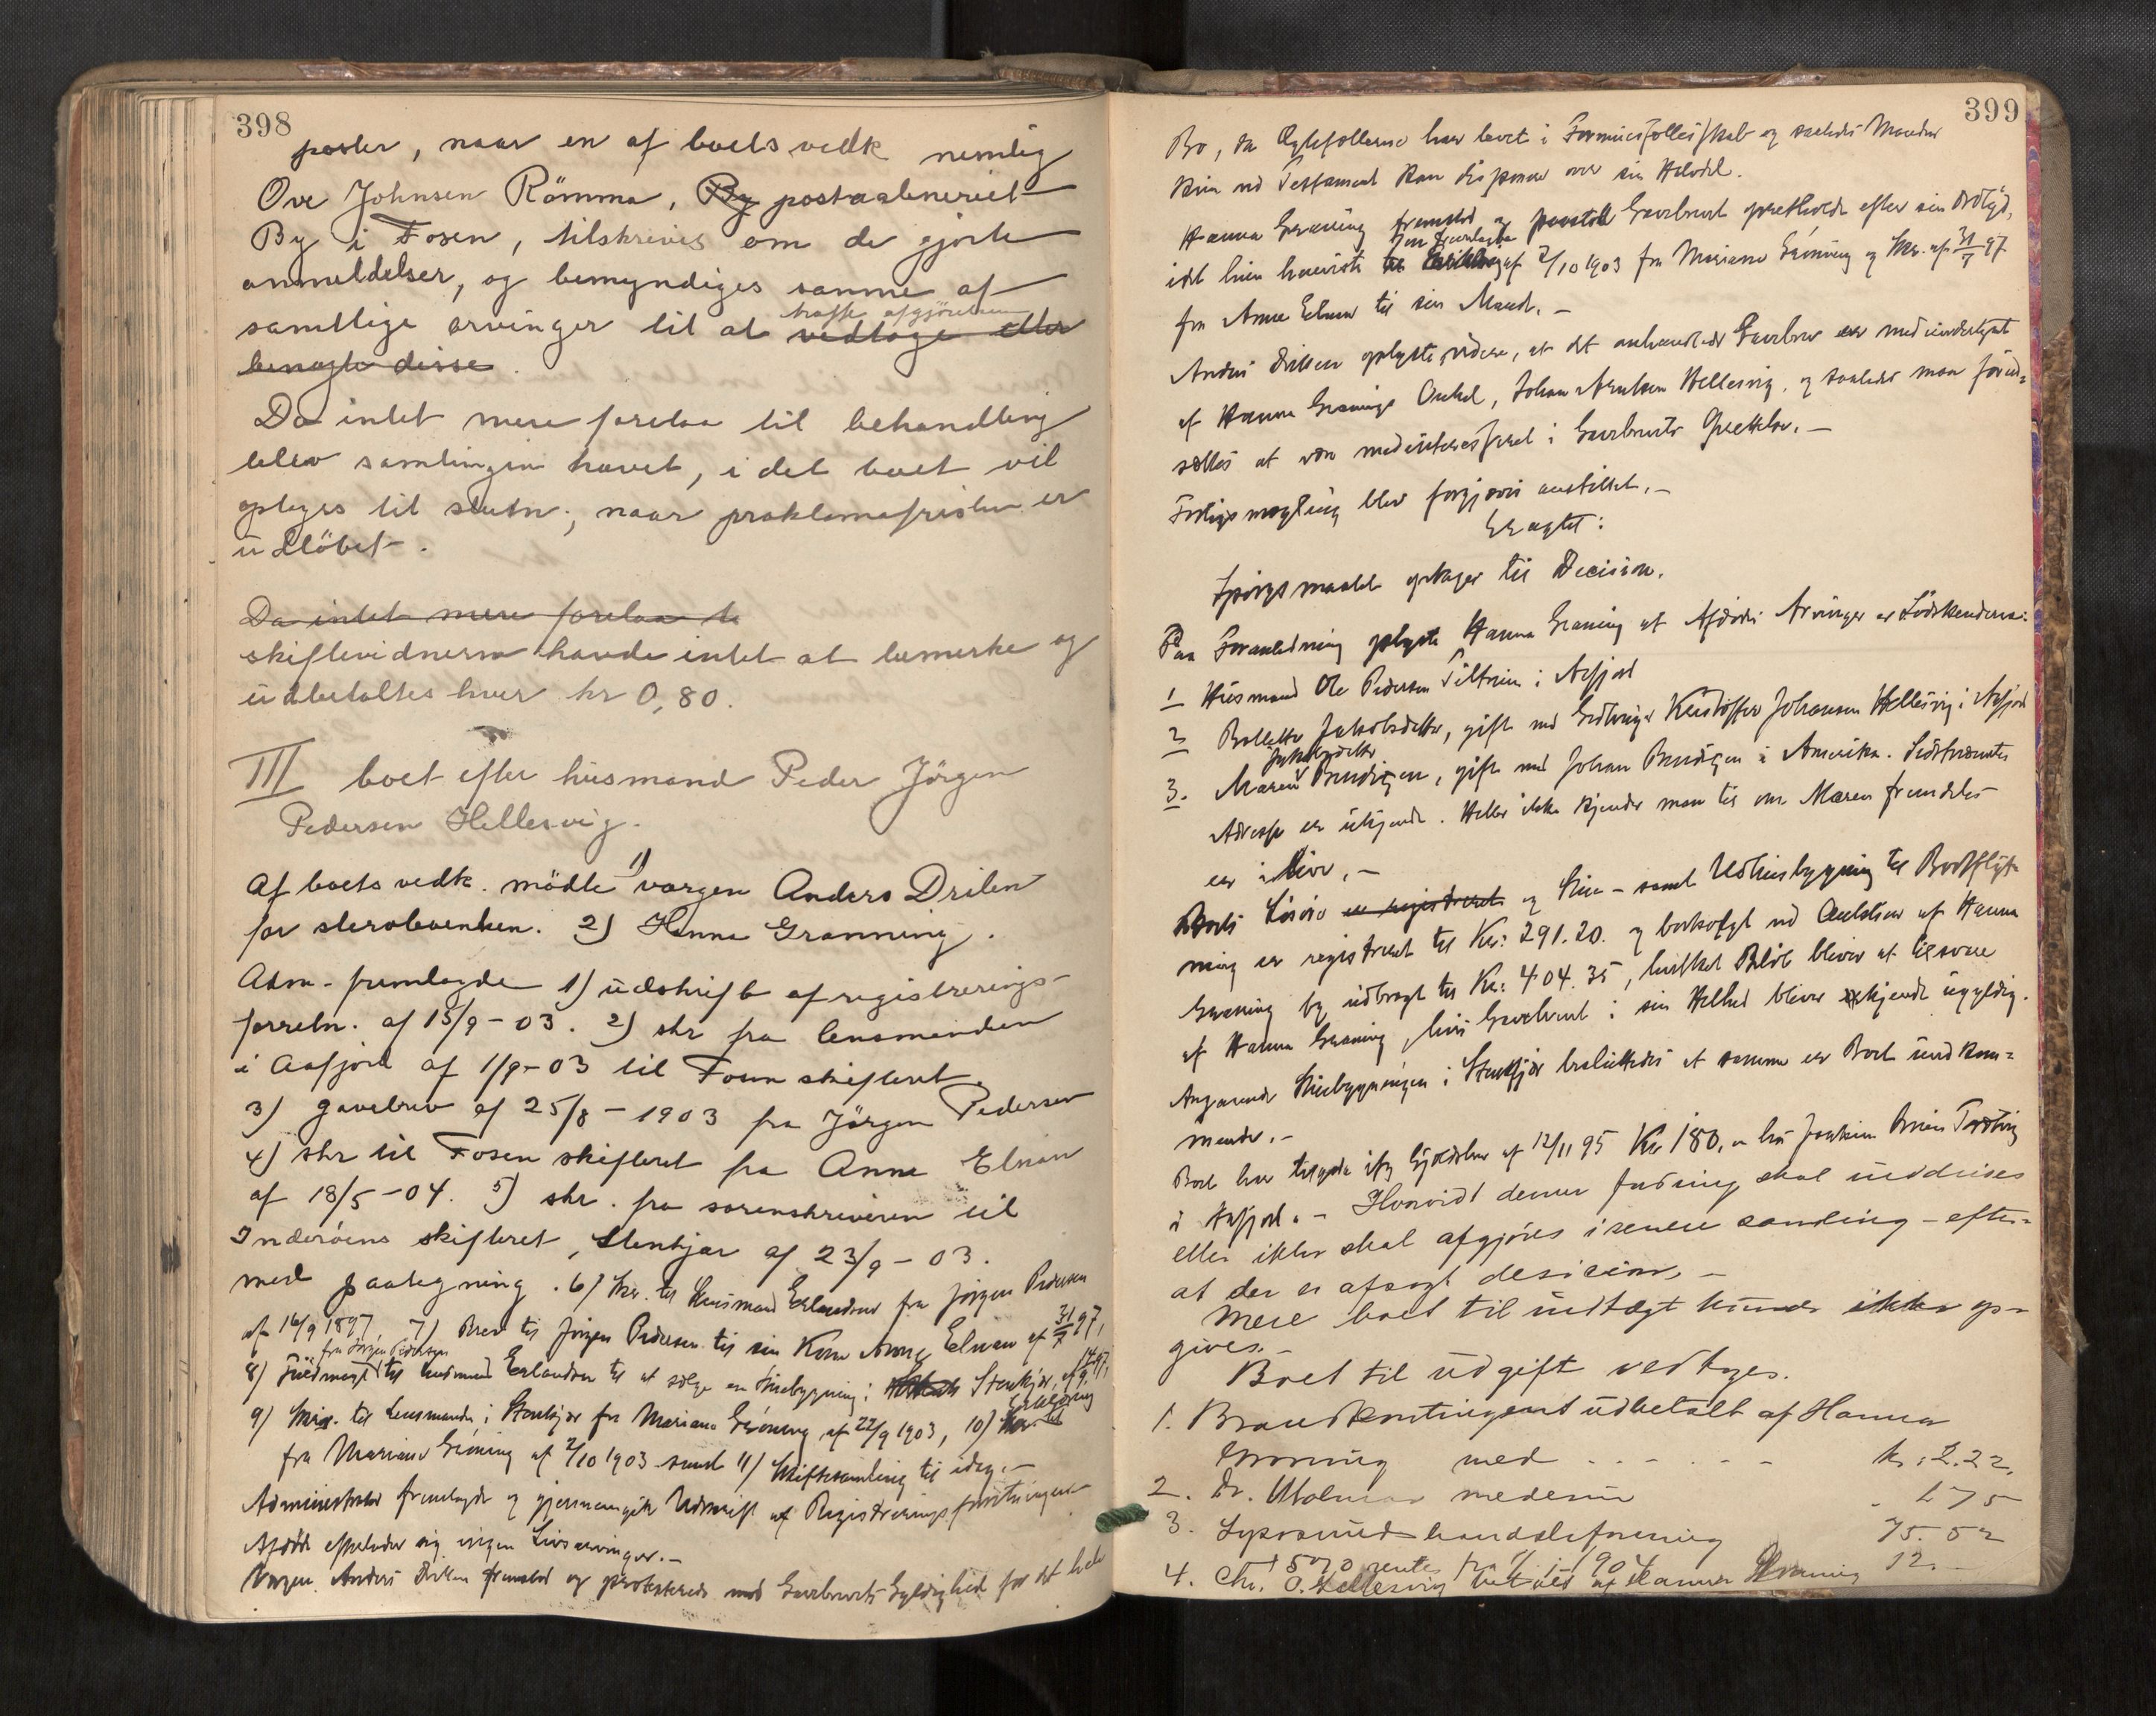 398
poster, naar en af boets vedk nemlig
Ove Johnsen Römma, By postaabneriet
By i Fosen, tilskrives om de gjorte
anmeldelser, og bemyndiges samme af
samtlige arvinger til at vedtage eller
træffe afgjörelsen
benægte disse.
Da intet mere forelaa til behandling
blev samlingen hævet, i det boet vil
optages til slutn., naar proklamafristen er
udlöbet.
Da intet mere forelaa ti
skiftevidnerne havde intet at bemerke og
udbetaltes hver kr 0,80.
III boet efter husmand Peder Jörgen
Pedersen Hellesvig.
Af boets vedk. mödte 1) værgen Anders Drilen
for sterboenken. 2) Hanna Granning.
Adm. fremlagde 1) udskrift af registrerings-
forretn. af 15/9-03. 2) skr fra lensmanden
i Aafjord af 1/9-03 til Fosen skifteret.
3) gavebrev af 25/8-1903 fra Jörgen Pedersen
4) skr til Fosen skifteret fra Anne Elnan
af 18/5-04. 5) skr. fra sorenskriveren til
Inderöens skifteret, Stenkjær af 23/9-03.
med paategning. 6) Skr. til Husmand Erlandsen fra Jörgen Pedersen
af 16/9 1897 7) Brev til Jörgen Pedersen til sin Kone Anne Elnan af 31/7 97,
8) Fuldmagt fra Jörgen Pedersen til husmand Erlandsen til at sælge en Stuebygning i Stenkjær, af 14/9 97,
9) Skr. til Lensmanden i Stenkjær fra Mariane Gröning af 22/9 1903, 10) Erklæring
fra Mariane Gröning af 2/10 1903 samt 11) Skiftesamling til idag.-
Administrator fremlagde og gjennemgik Udskrift af Registreringsforretningen
Afdöde efterlader sig ingen Livsarvinger.-
Værgen Anders Drilen fremstod og protesterede mod Gavebrevets Gyldighed for det hele
399
Bo, da Ægtefollerne har levet i Formuesfællesskab og saaledes Manden
kun ved Testament kan disponere over sin Halvdel.
Hanna Graning fremstod og paastod Gavebrevet opretholdt efter sin Ordlyd,
idet hun henviste til den fremlagte af 2/10 1903 fra Mariane Gröning og Skr. af 31/7 97
fra Anne Elnan til sin Mand.-
Anders Drilen oplyste videre, at det omhandlede Gavebrev er medunderskrevet
af Hanna Granings Onkel, Johan Arntsen Hellesvig, og saaledes maa forud-
sættes at være medinteresseret i Gavebrevets Oprettelse.-
Forligsmægling blev forgjæves anstillet.-
Eragtet:
Spörgsmaalet optages til Decision.
Paa Foranledning oplyste Hanna Graning at Afdödes Arvinger er Södskenderne:
1 Husmand Ole Pedersen Teltnin i Aafjord
2 Bollette Jakobsdatter, gift med Gaardbruger Kristoffer Johansen Hellesvig i Aafjord
3. Maren Jakobsdatter Bendigsen, gift med Johan Bendigsen i Amerika. Sidstnævntes
Adresse er ukjendt. Heller ikke kjender man til om Maren fremdeles
er ilive.-
Boets Lösöre er registreret og Stue- samt Udhusbygning til Bortflyt-
ning er registreret til Kr: 291.20. og bortsolgt ved Auktion af Hanna
Graning og udbragt til Kr: 404.35, hvilket Belöb bliver at tilsvare
af Hanna Graning, hvis Gavebrevet i sin Helhed bliver kjendt ugyldig.
Angaaende Stuebygningen i Stenkjær besluttedes at samme er Boet uvedkom-
mende.-
Boet har tilgode ifg Gjældsbrev af 12/11 95 Kr 180, hos Joakim
i Aafjord.- Hvorvidt denne fordring skal inddrives
eller ikke skal afgjöres i senere samling - efter-
at der er afsagt desision.-
Mere boet til indtægt kunde ikke op-
gives.-
Boet til udgift vedtages.
1. Brandkontingent udbetalt af Hanna
Graning med - - - - - kr. 2.22.
2. Dr. medesin - 4 75
3. Lyssund handelsforening 75.52
+ 5% rente fra 1/1 1904
4. Chr. O. Hellesvig bet. af Hanna Graning 12.-